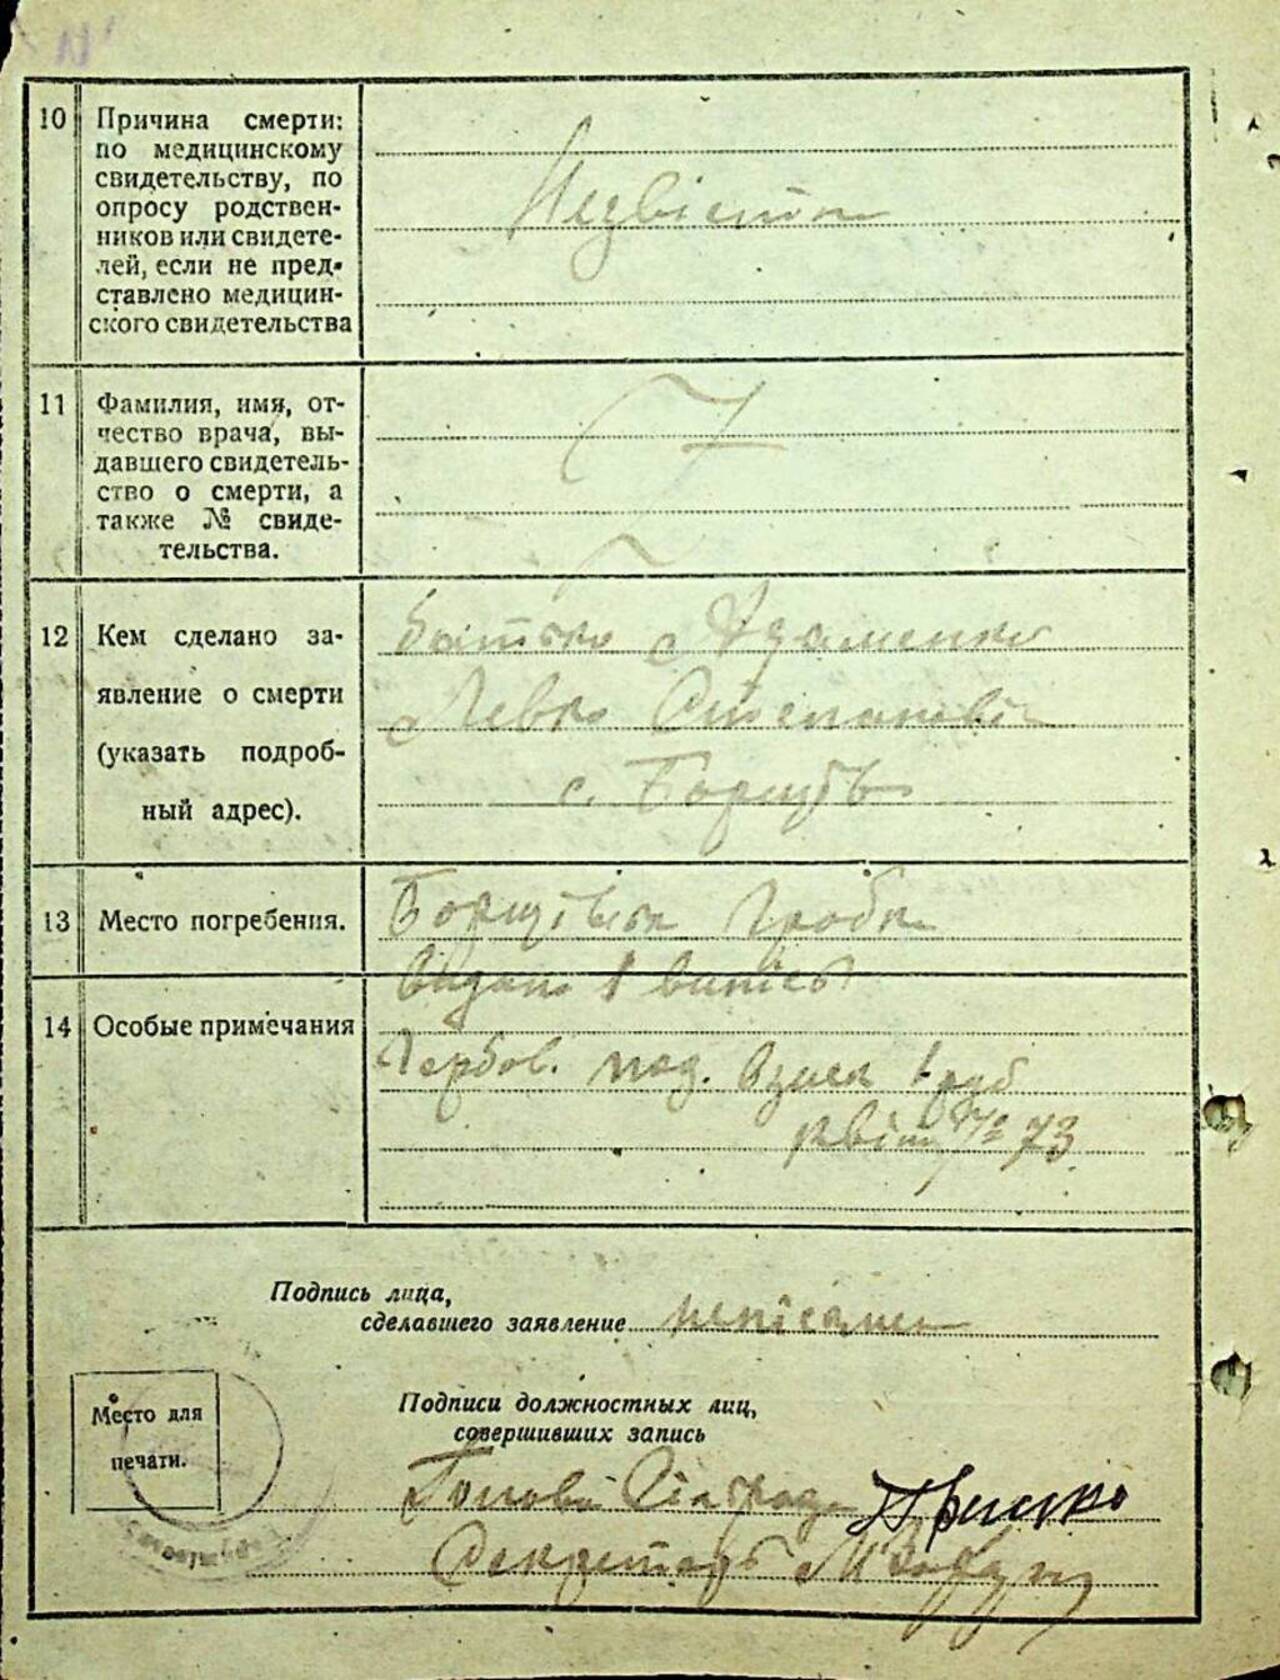 10 Причина смерти:
по медицинскому
свидетельству, по
опросу родствен-
ников или свидете-
лей, если не пред-
ставлено медицин-
ского свидетельства
Незвістна
11 Фамилия, имя, от-
чество врача, вы-
давшего свидетель-
ство о смерти, а
также № свиде-
тельства.
12 Кем сделано за-
явление о смерти
(указать подроб-
ный адрес).
батько Адаменко
Левко Степанович
с. Борщів
13 Место погребения.
Борщівськ гробки
14 Особые примечания
Видано 1 випись
Гербов. под. взиск 1 руб
квіт № 73
Подпись лица,
сделавшего заявление неписьмен
Место для
печати.
Подписи должностных лиц,
совершивших запись
Голова Сільради
Секретарь